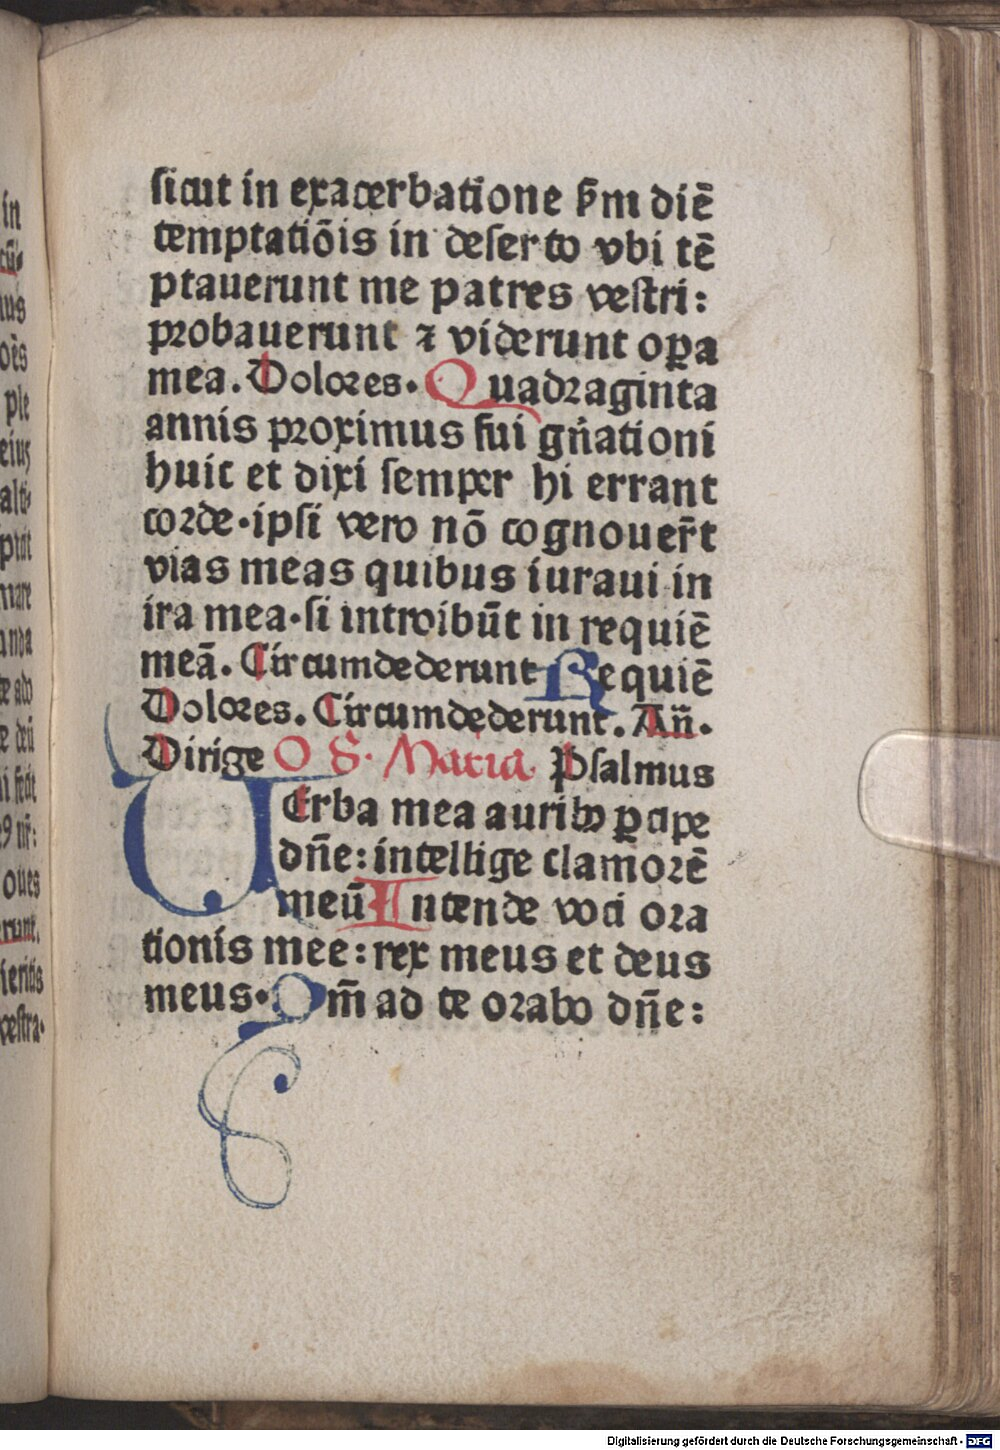 ſicut in exacerbatione ẜm diē
temptatiōis in deſerto vbi tē
ptauerunt me patres veſtri:
probauerunt ⁊ viderunt oꝑa
mea. Dolores. Quadraginta
annis proximus fui gn̄ationi
huic et dixi ſemper hi errant
corde·ipſi vero nō cognouer̄t
vias meas quibus iuraui in
ira mea·ſi introibūt in requiē
meā. Circumdederunt Requiē
Dolores. Circumdederunt. An̄.
Dirige O S. Maria Pſalmus
VErba mea auribꝫ ꝑcipe
dn̄e: intellige clamorē
meū Intende voci ora
tionis mee: rex meus et deus
meus. Qm̄ ad te orabo dn̄e:
in
cū·
ius
oēs
ple
eius
alti
nare
anda
te ad
e deū
oues
erunt.
ieritis
veſtra·
Digitalisierung gefördert durch die Deutsche Forschungsgemeinschaft - DFG